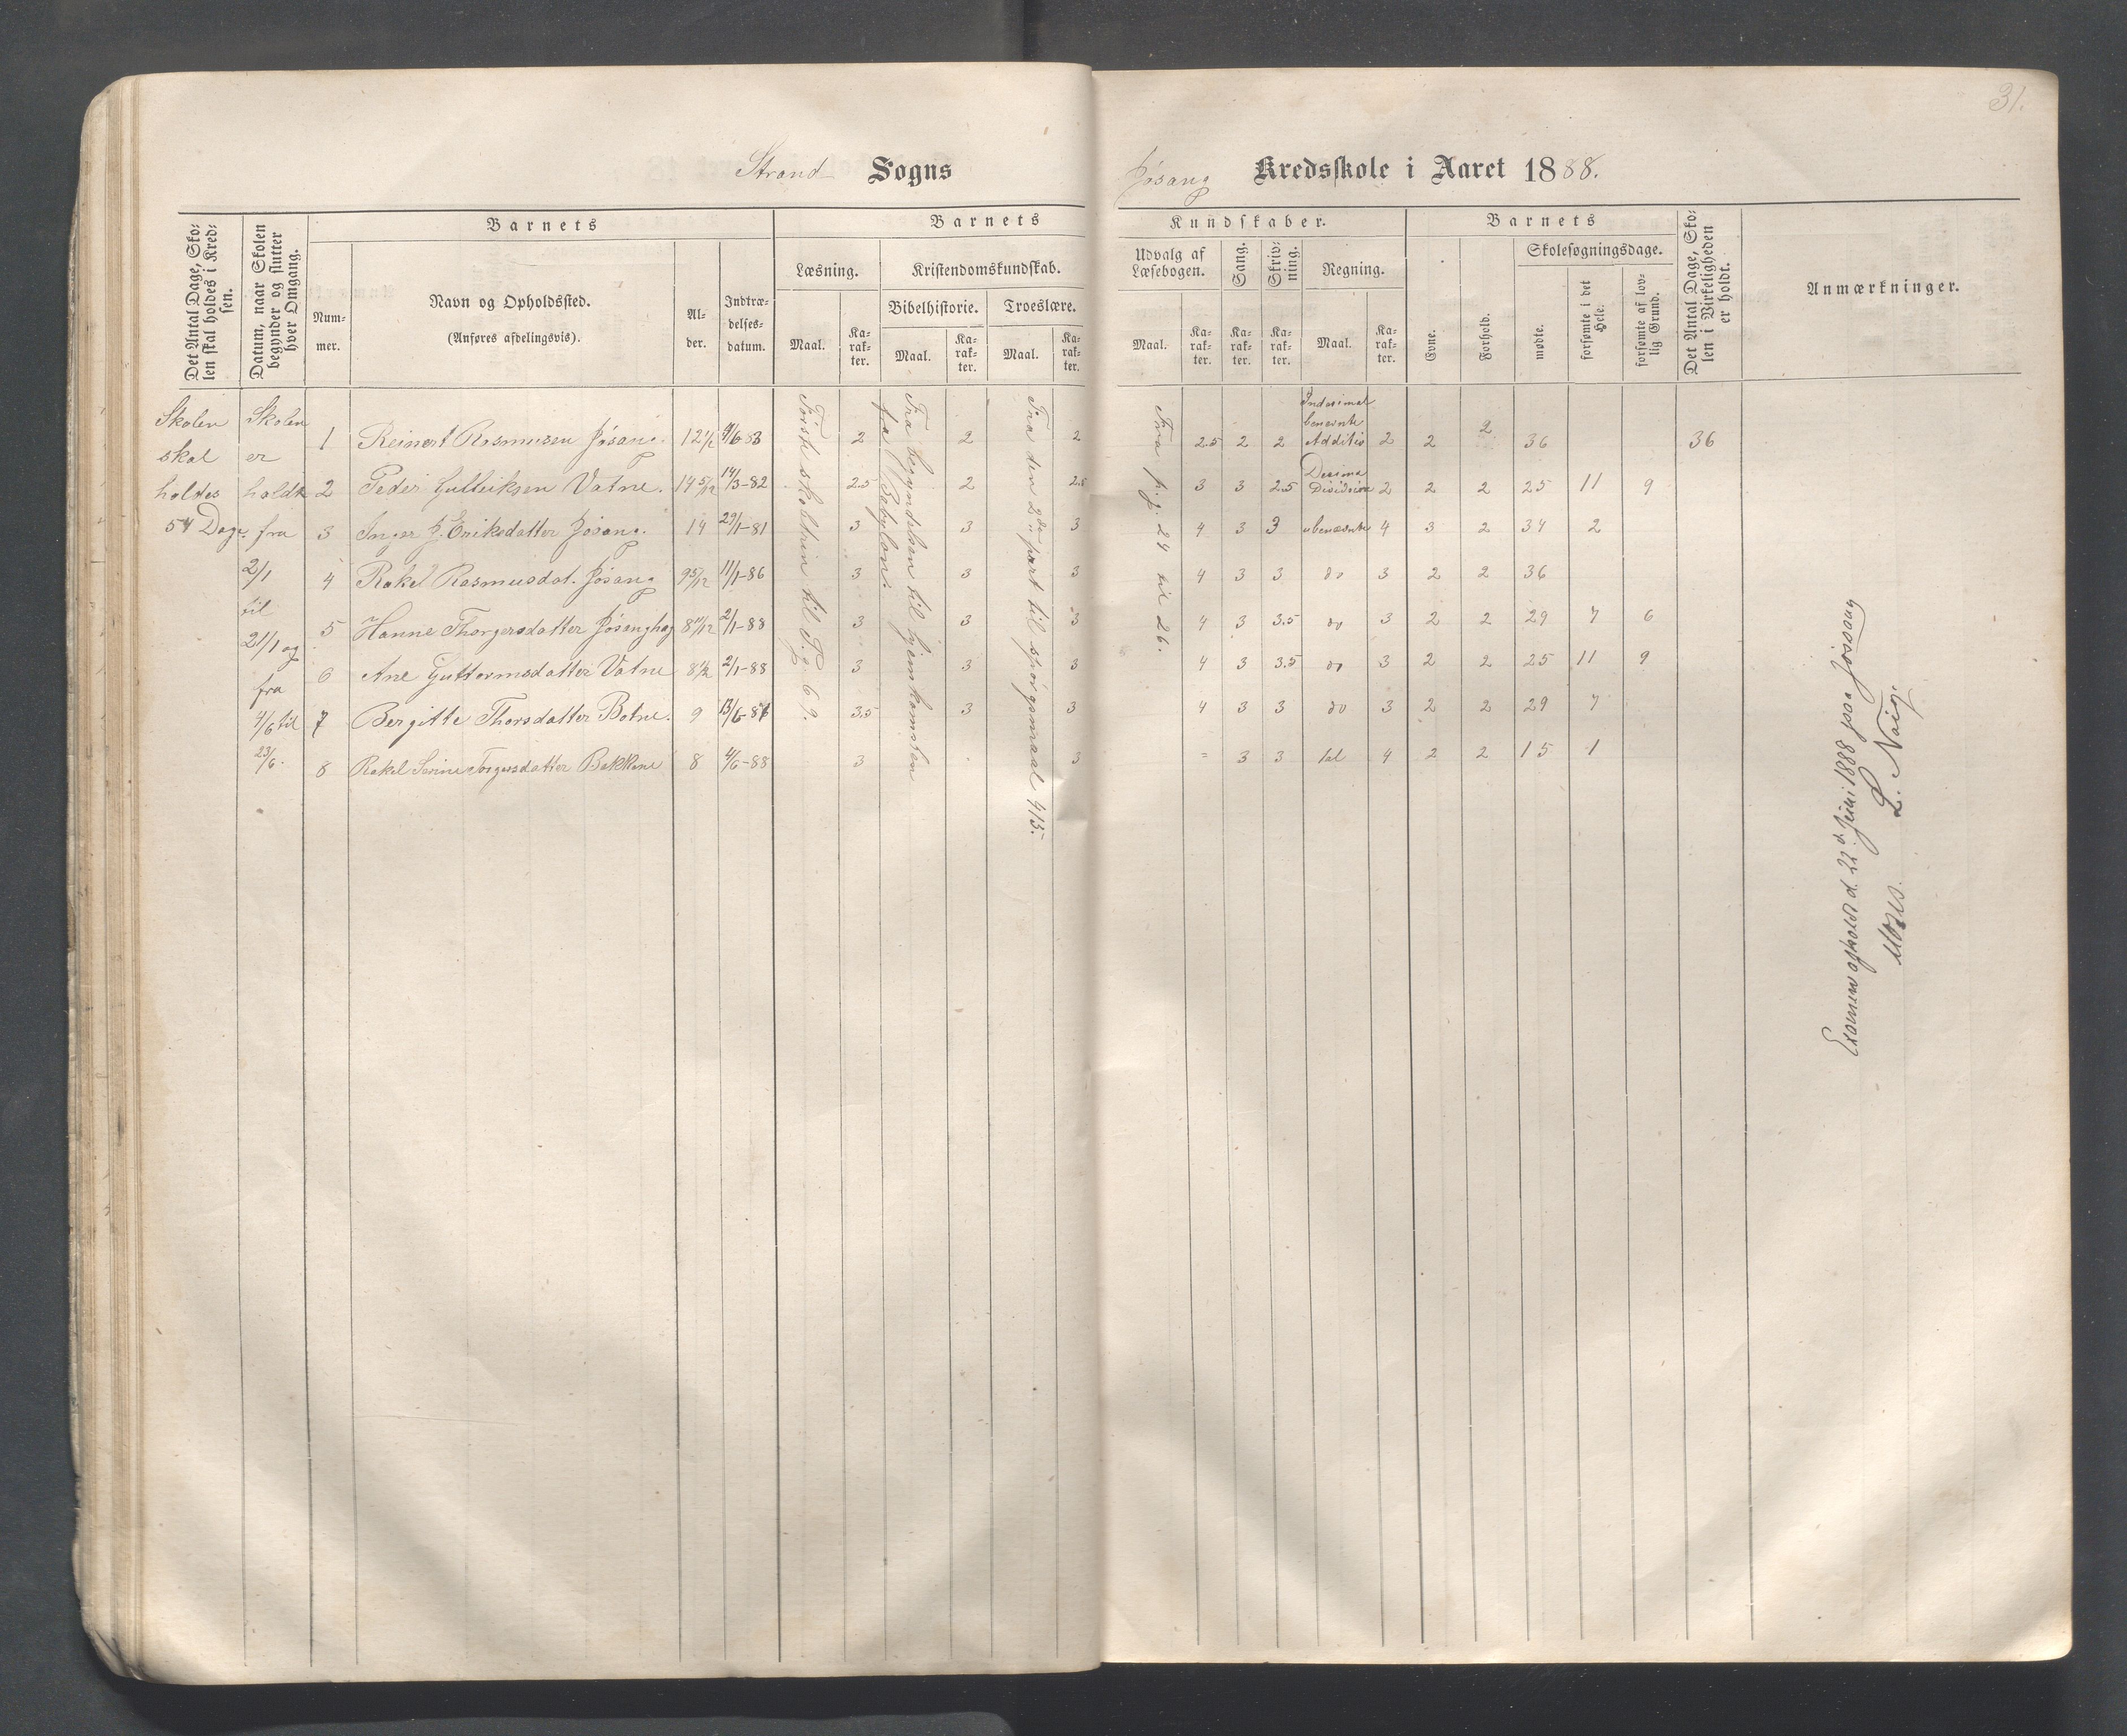 31.
Strand Sogns
Jøsang Kredsskole i Aaret 1888.
Det Antal Dage, Skolen skal holdes i Kredsen.
Datum, naar Skolen begynder og slutter hver Omgang.
Barnets
Nummer.
Navn og Opholdssted.
(Anføres afdelingsvis).
Alder.
Indtrædelsesdatum.
Barnets
Læsning.
Maal.
Karakter.
Kristendomskundskab.
Bibelhistorie.
Maal.
Karakter.
Troeslære.
Maal.
Karakter.
Kundskaber.
Udvalg af Læsebogen.
Maal.
Karakter.
Sang.
Karakter.
Skrivning.
Karakter.
Regning.
Maal.
Karakter.
Barnets
Evne.
Forhold.
Skolesøgningsdage.
mødte.
forsømte i det Hele.
forsømte af lovlig Grund.
Det Antal Dage, Skolen i Virkeligheden er holdt.
Anmærkninger.
Skolen
skal
holdes
54 Dage.
Skolen
er
holdt
fra
2/1
til
21/1 og
fra
4/6 til
23/6.
1 Reinert Rasmusen Jøsang. 12 1/2 4/6-83 2 2 2 2.5 2 2 benevnte Additio 2 2 2 36 36
2 Peder Gutteiksen Vatne. 14 5/12 14/3-82 2.5 2 2.5 3 3 2.5 Desima Division 2 2 2 25 11 9
3 Inger J. Eriksdatter Jøsang. 14 29/1-81 3 3 3 4 3 3 ubenævnte 4 3 2 34 2
4 Rakel Rasmusdat. Jøsang 9 5/12 11/1-86 3 3 3 4 3 3 do 3 2 2 36
5 Hanne Thorgersdatter Jøsanghag 8 11/12 2/1-88 3 3 3 4 3 3.5 do 3 2 2 29 7 6
6 Ane Guttormsdatter Vatne 8 1/2 2/1-88 3 3 3 4 3 3.5 do 3 2 2 25 11 9
7 Bergitte Thorsdatter Botne. 9 13/6-87 3.5 3 3 4 3 3 do 3 2 2 29 7
8 Rakel Serine Torgersdatter Bakkene 8 4/6-88 3 · 3 = 3 3 tal 4 2 2 15 1
til P. g. 69.
Fra begyndelsen til hjemkomsten
fra Babylon.
Fra den 2den part til spörgsmaal 415.
Fra p. g. 24 til 26.
Examen afholdt d. 22d. Juni 1888 paa Jössang
L. Naig.